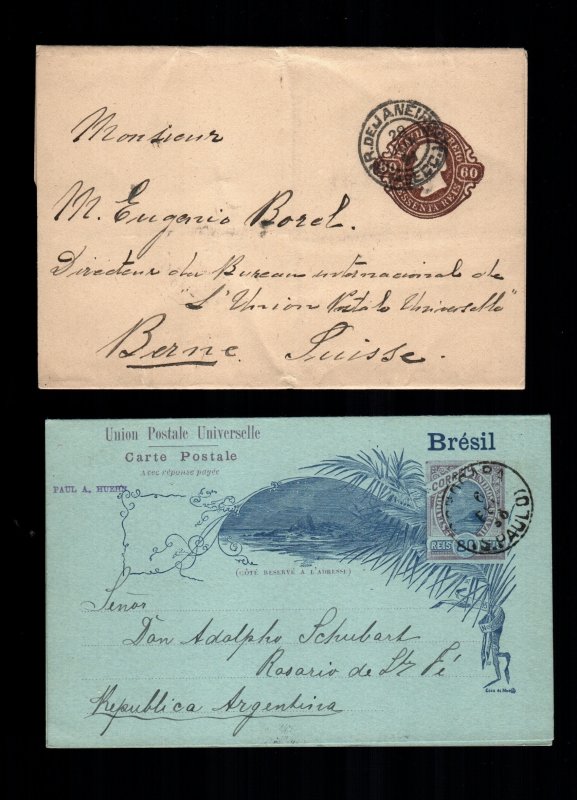 Monsieur
M. Eugenio Borel.
Directeur du Bureau internacional de
"L'Union Postale Universelle"
Berne. Suisse.
R. DE JANEIRO
60
SESSENTA REIS
Union Postale Universelle
Carte Postale
Avec réponse payée
Brésil
PAUL A. HUEHN
CORREIO
REIS 80
S. PAULO
(CÔTÉ RÉSERVÉ A L'ADRESSE)
Señor
Dãn Adolpho Schubart
Rosario de Sta Fé
Republica Argentina
Casa da Moeda